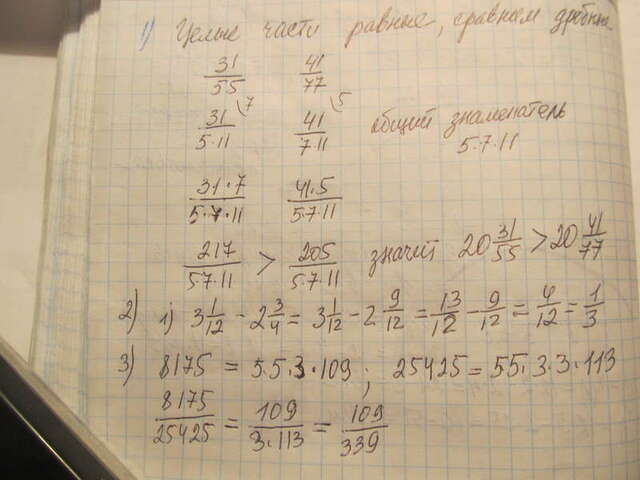 1) Целые части равные, сравним дробные
31/55 41/77
31/5·11 \7 41/7·11 \5 общий знаменатель 5·7·11
31·7/5·7·11 41·5/5·7·11
217/5·7·11 > 205/5·7·11 значит 20 31/55 > 20 41/77
2) 1) 3 1/12 - 2 3/4 = 3 1/12 - 2 9/12 = 13/12 - 9/12 = 4/12 = 1/3
3) 8175 = 5·5·3·109 ; 25425 = 5·5·3·3·113
8175/25425 = 109/3·113 = 109/339